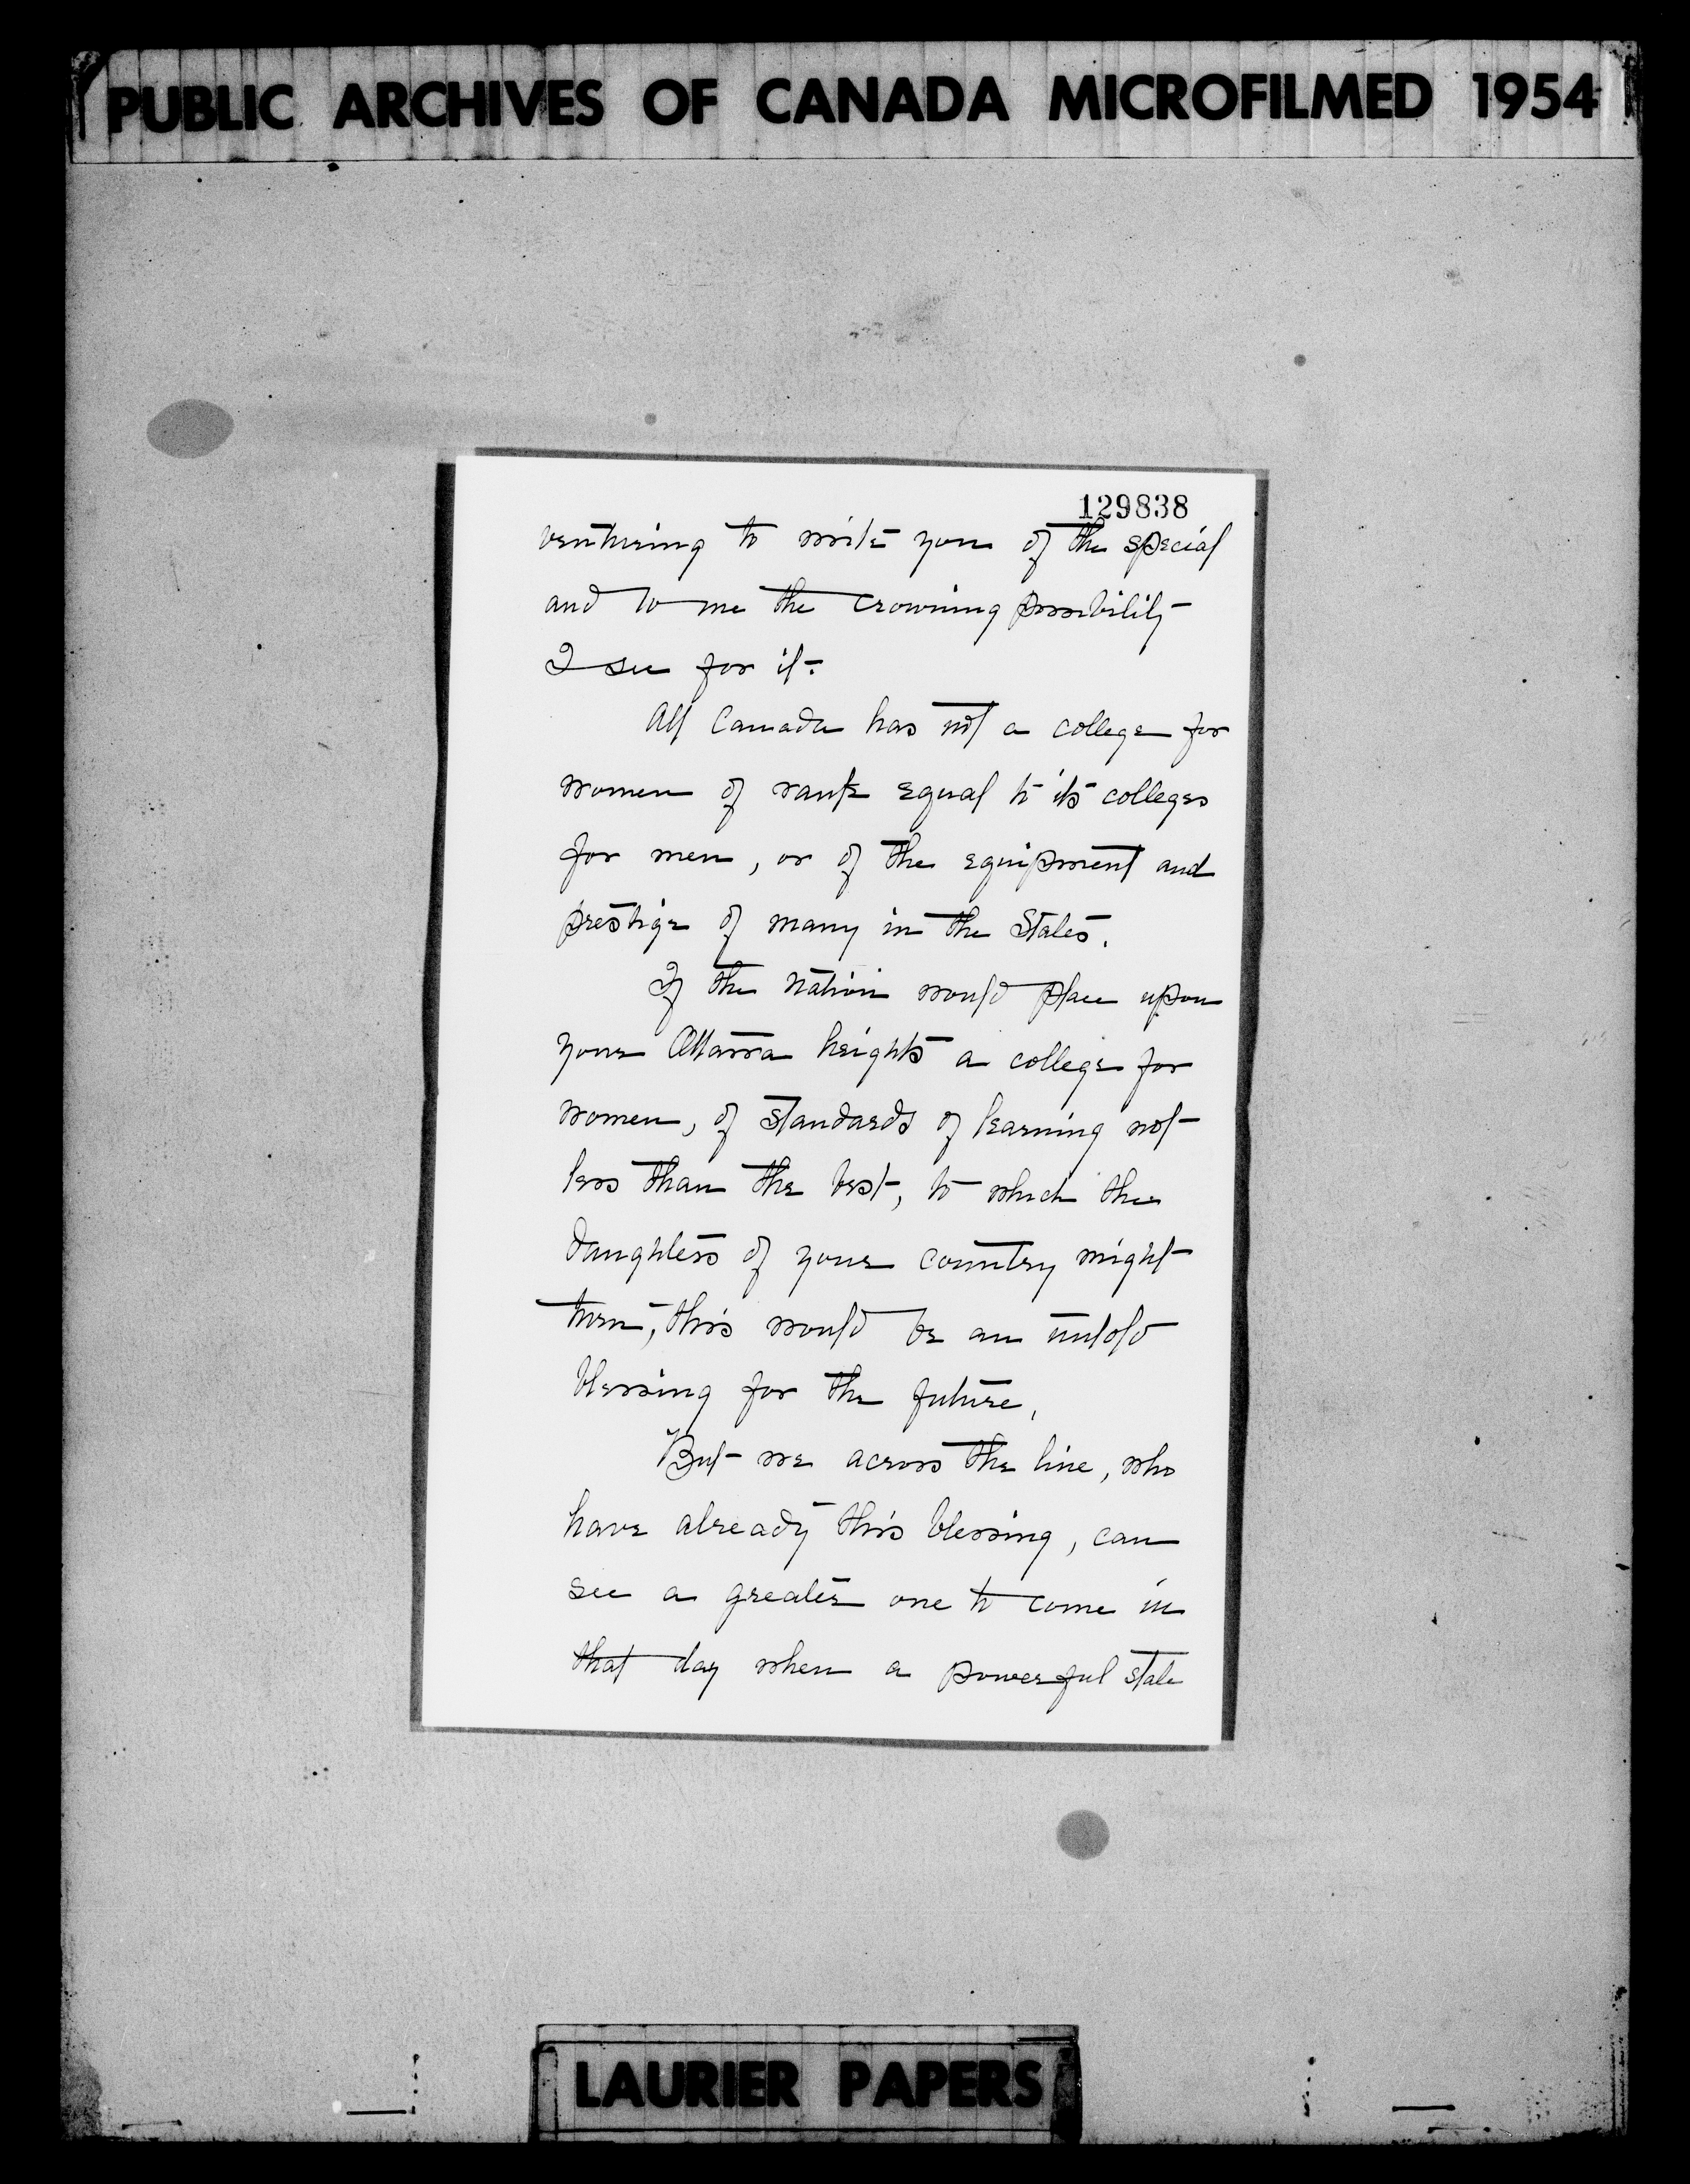 PUBLIC ARCHIVES OF CANADA MICROFILMED 1954
129838
venturing to write you of the special
and to me the crowning possibility
I see for it.
All Canada has not a college for
women of rank equal to its colleges
for men, or of the equipment and
prestige of many in the States.
If the nation would place upon
your Ottawa heights a college for
women, of standards of learning not
less than the best, to which the
daughters of your country might
turn, this would be an untold
blessing for the future.
But we across the line, who
have already this blessing, can
see a greater one to come in
that day when a powerful state
LAURIER PAPERS